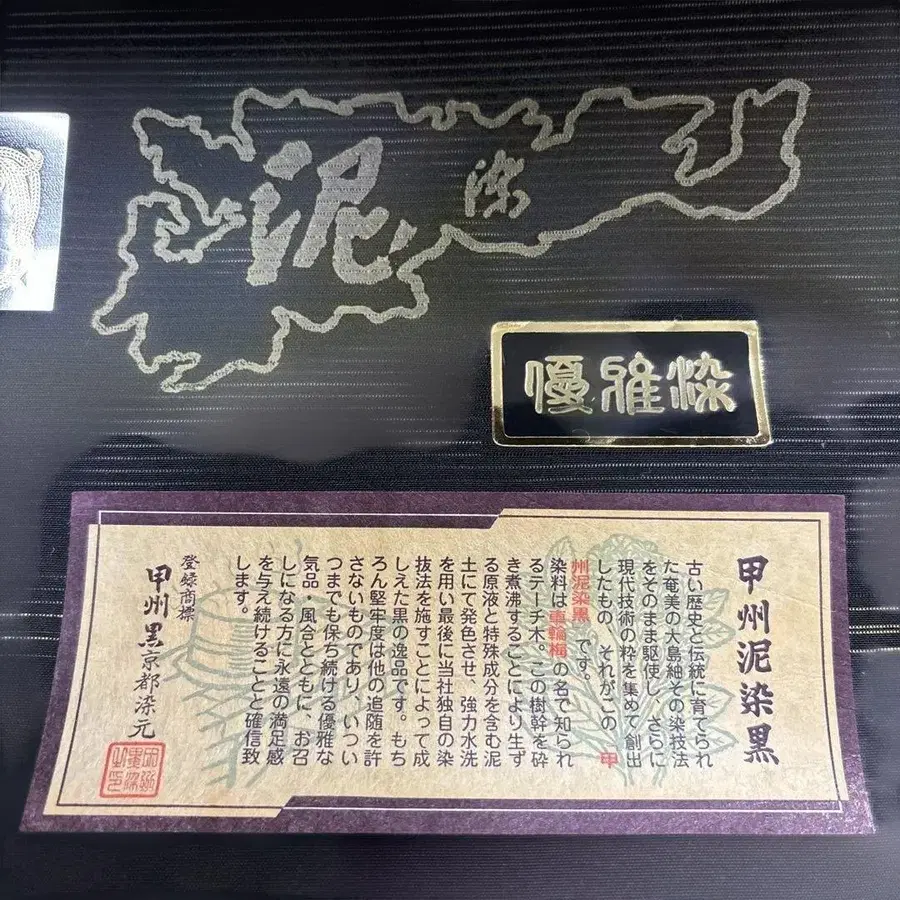 泥
染
優雅染
甲州泥染黒
古い歴史と伝統に育てられ
た奄美の大島紬その染技法
をそのまま駆使し、さらに
現代技術の粋を集めて創出
したもの、それがこの 甲
州泥染黒 です。
染料は 車輪梅 の名で知られ
るテーチ木。この樹幹を砕
き煮沸することにより生ず
る原液と特殊成分を含む泥
土にて発色させ、強力水洗
を用い最後に当社独自の染
抜法を施すことによって成
しえた黒の逸品です。もち
ろん堅牢度は他の追随を許
さないものであり、いつい
つまでも保ち続ける優雅な
気品・風合とともに、お召
しになる方に永遠の満足感
を与え続けることと確信致
します。
登録商標
甲州黒京都染元